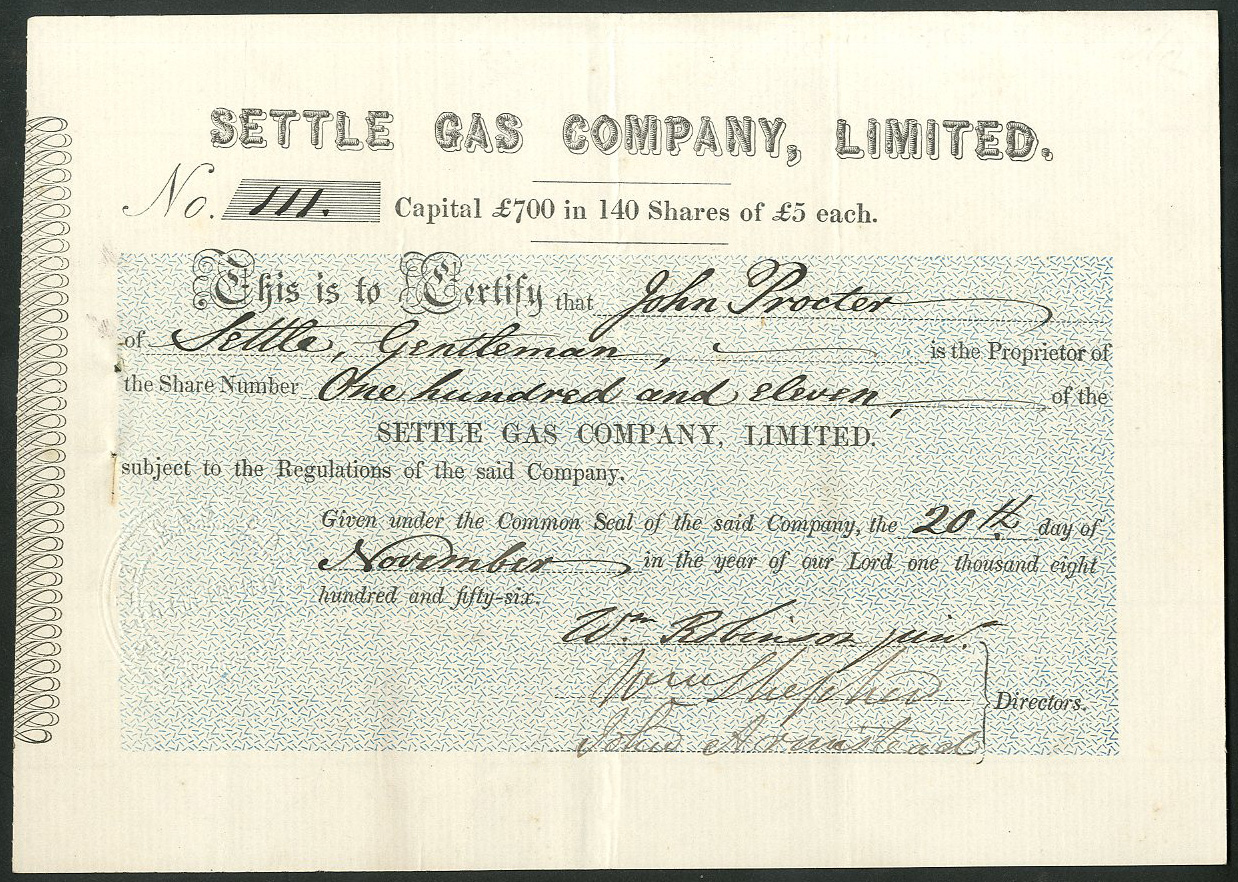 SETTLE GAS COMPANY, LIMITED.
No. 111. Capital £700 in 140 Shares of £5 each.
This is to Certify that John Procter
of Settle, Gentleman, is the Proprietor of
the Share Number One hundred and eleven, of the
SETTLE GAS COMPANY, LIMITED.
subject to the Regulations of the said Company.
Given under the Common Seal of the said Company, the 20th day of
November in the year of our Lord one thousand eight
hundred and fifty-six.
Wm Robinson junr.
Wm Shepherd
Directors.
John Armistead